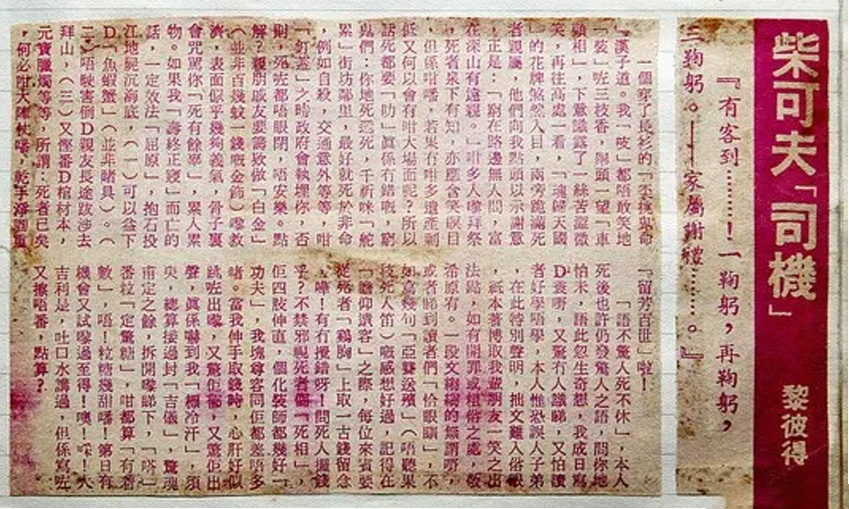 柴可夫「司機」
黎彼得
『有客到……！一鞠躬，再鞠躬，
三鞠躬。——家屬謝禮……。』
一個穿了長衫的「
「漢子道。我「吱」都唔敢笑地
「裝」咗三枝香，舉頭一望「車
頭相」，下意識露了一絲苦澀微
笑，再往高處一看，「魂歸天國
」的花牌煞然入目，兩旁跪滿死
者親屬，他們向我點頭以示謝意
，正是：「窮在路邊無人問，富
在深山有遠親。」咁多人嚟拜祭
，死者泉下有知，亦應含笑瞑目
，但係咁噃，若果冇咁多遺產剩
低又何以會有咁大場面呢？所以
話死都要「叻」真係有錯嘅，窮
鬼們：你地死還死，千祈咪「舵
累」街坊鄰里，最好就死於非命
，例如自殺，交通意外等等，咁
「釘蓋」之時政府會執埋你，否
則，死咗都唔眼閉，唔安樂。點
解？親朋戚友要籌致做「白金」
（並非百幾蚊一錢嘅金飾）嚟救
濟，表面似乎幾夠義氣，骨子裏
會咒罵你「死有餘辜」，累人累
物。如果我「壽終正寢」而亡的
話，一定效法「屈原」，抱石投
江地屍沉海底，（一）可以益下
D「魚蝦蟹」（並非賭具）。（
二）唔駛害倒D親友長途跋涉去
拜山，（三）又慳番D棺材本，
元寶臘燭等等，所謂：死者已矣
，何必咁大陣仗噃，乾手淨脚重
「留芳百世」啦！
「語不驚人死不休」，本人
死後也許仍發驚人之語，問你地
怕未，語此忽生奇想，我成日寫
D衰嘢，又驚冇人識睇，又怕讀
者好學唔學，本人惟恐誤人子弟
，在此特別聲明，拙文難入俗眼
，祇本著博取我輩朋友一笑之出
法點，如有開罪或粗俗之處，敬
希原宥。一段文縐縐的無謂嘢，
或者睇到讀者們「恰眼瞓」，不
如寫幾句「亞聾送殯」（唔聽果
技死人笛）嘅感想好過，記得在
「瞻仰遺容」之際，每位來賓要
從死者「鷄胸」上取一古錢留念
，嘩！有冇攪錯呀！問死人攞錢
乎？不禁邪視死者個「死相」，
佢四肢伸直，個化裝師都幾好「
功夫」，我塊尊容同佢都差唔多
啫。當我伸手取錢時，心肝好似
跳咗出嚟，又驚佢郁，又驚佢出
聲，真係嚇到我「標冷汗」，須
臾，總算接過封「吉儀」，驚魂
甫定之餘，拆開嚟睇下，「嗒」
番粒「定驚糖」，咁都算「有著
數」，唔！粒糖幾甜噃！第日有
機會又試嚟過至得！噢！啋！大
吉利是，吐口水講過，但係寫咗
又擦唔番，點算？